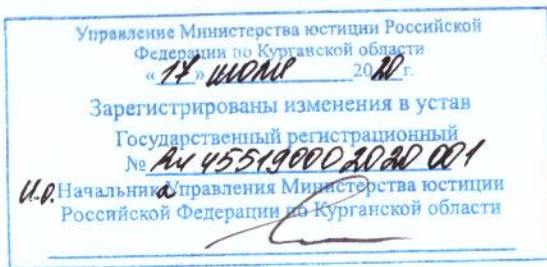 Управление Министерства юстиции Российской
Федерации по Курганской области
« 17 » июля 2020 г.
Зарегистрированы изменения в устав
Государственный регистрационный
№ RU 455190002020 001
И.о. Начальника Управления Министерства юстиции
Российской Федерации по Курганской области